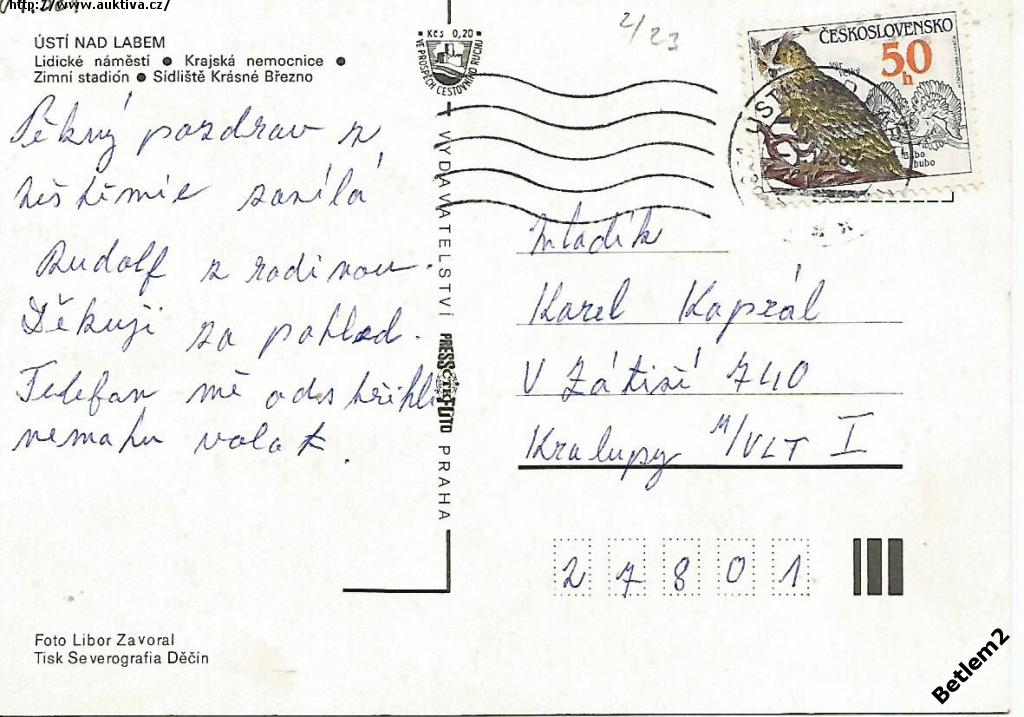 http://www.auktiva.cz/
ÚSTÍ NAD LABEM
Lidické náměstí ● Krajská nemocnice ●
Zimní stadión ● Sídliště Krásné Březno
Pěkný pozdrav z
zasílá
Rudolf z rodinou.
Děkuji za pohled.
Telefon mě odstřihli
nemohu volat.
Kčs 0,20
VE PROSPĚCH CESTOVNÍHO RUCHU
VYDAVATELSTVÍ PRESSFOTO PRAHA
ČTK
2/23
ČESKOSLOVENSKO
50 h
výr velký
Bubo bubo
Mladík
Karel Kaprál
V Zátiší 740
Kralupy n/VLT I
27801
Foto Libor Zavoral
Tisk Severografia Děčín
Betlem2